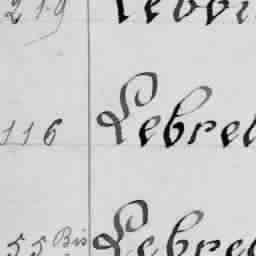 219
116 Lebrel
55 Bis Lebre